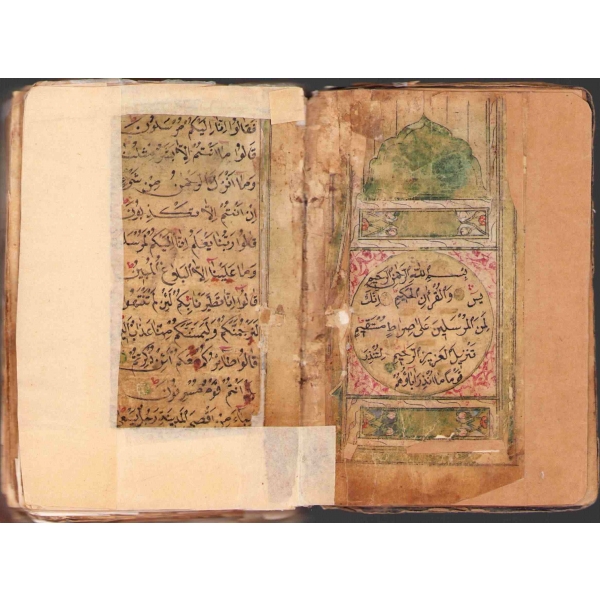 بسم الله الرحمن الرحيم
يس والقران الحكيم انك
لمن المرسلين على صراط مستقيم
تنزيل العزيز الرحيم لتنذر
قوما ما انذر اباؤهم
فقالوا انا اليكم مرسلون
قالوا ما انتم الا بشر مثلنا
وما انزل الرحمن من شئ
ان انتم الا تكذبون
قالوا ربنا يعلم انا اليكم لمرسلو
وما علينا الا البلاغ المبين
قالوا انا تطيرنا بكم لئن لم تنتهوا
لنرجمنكم وليمسنكم منا عذاب اليم
قالوا طائركم معكم ائن ذكرتم
انتم قوم مسرفون
وجاء من اقصى المدينة رجل